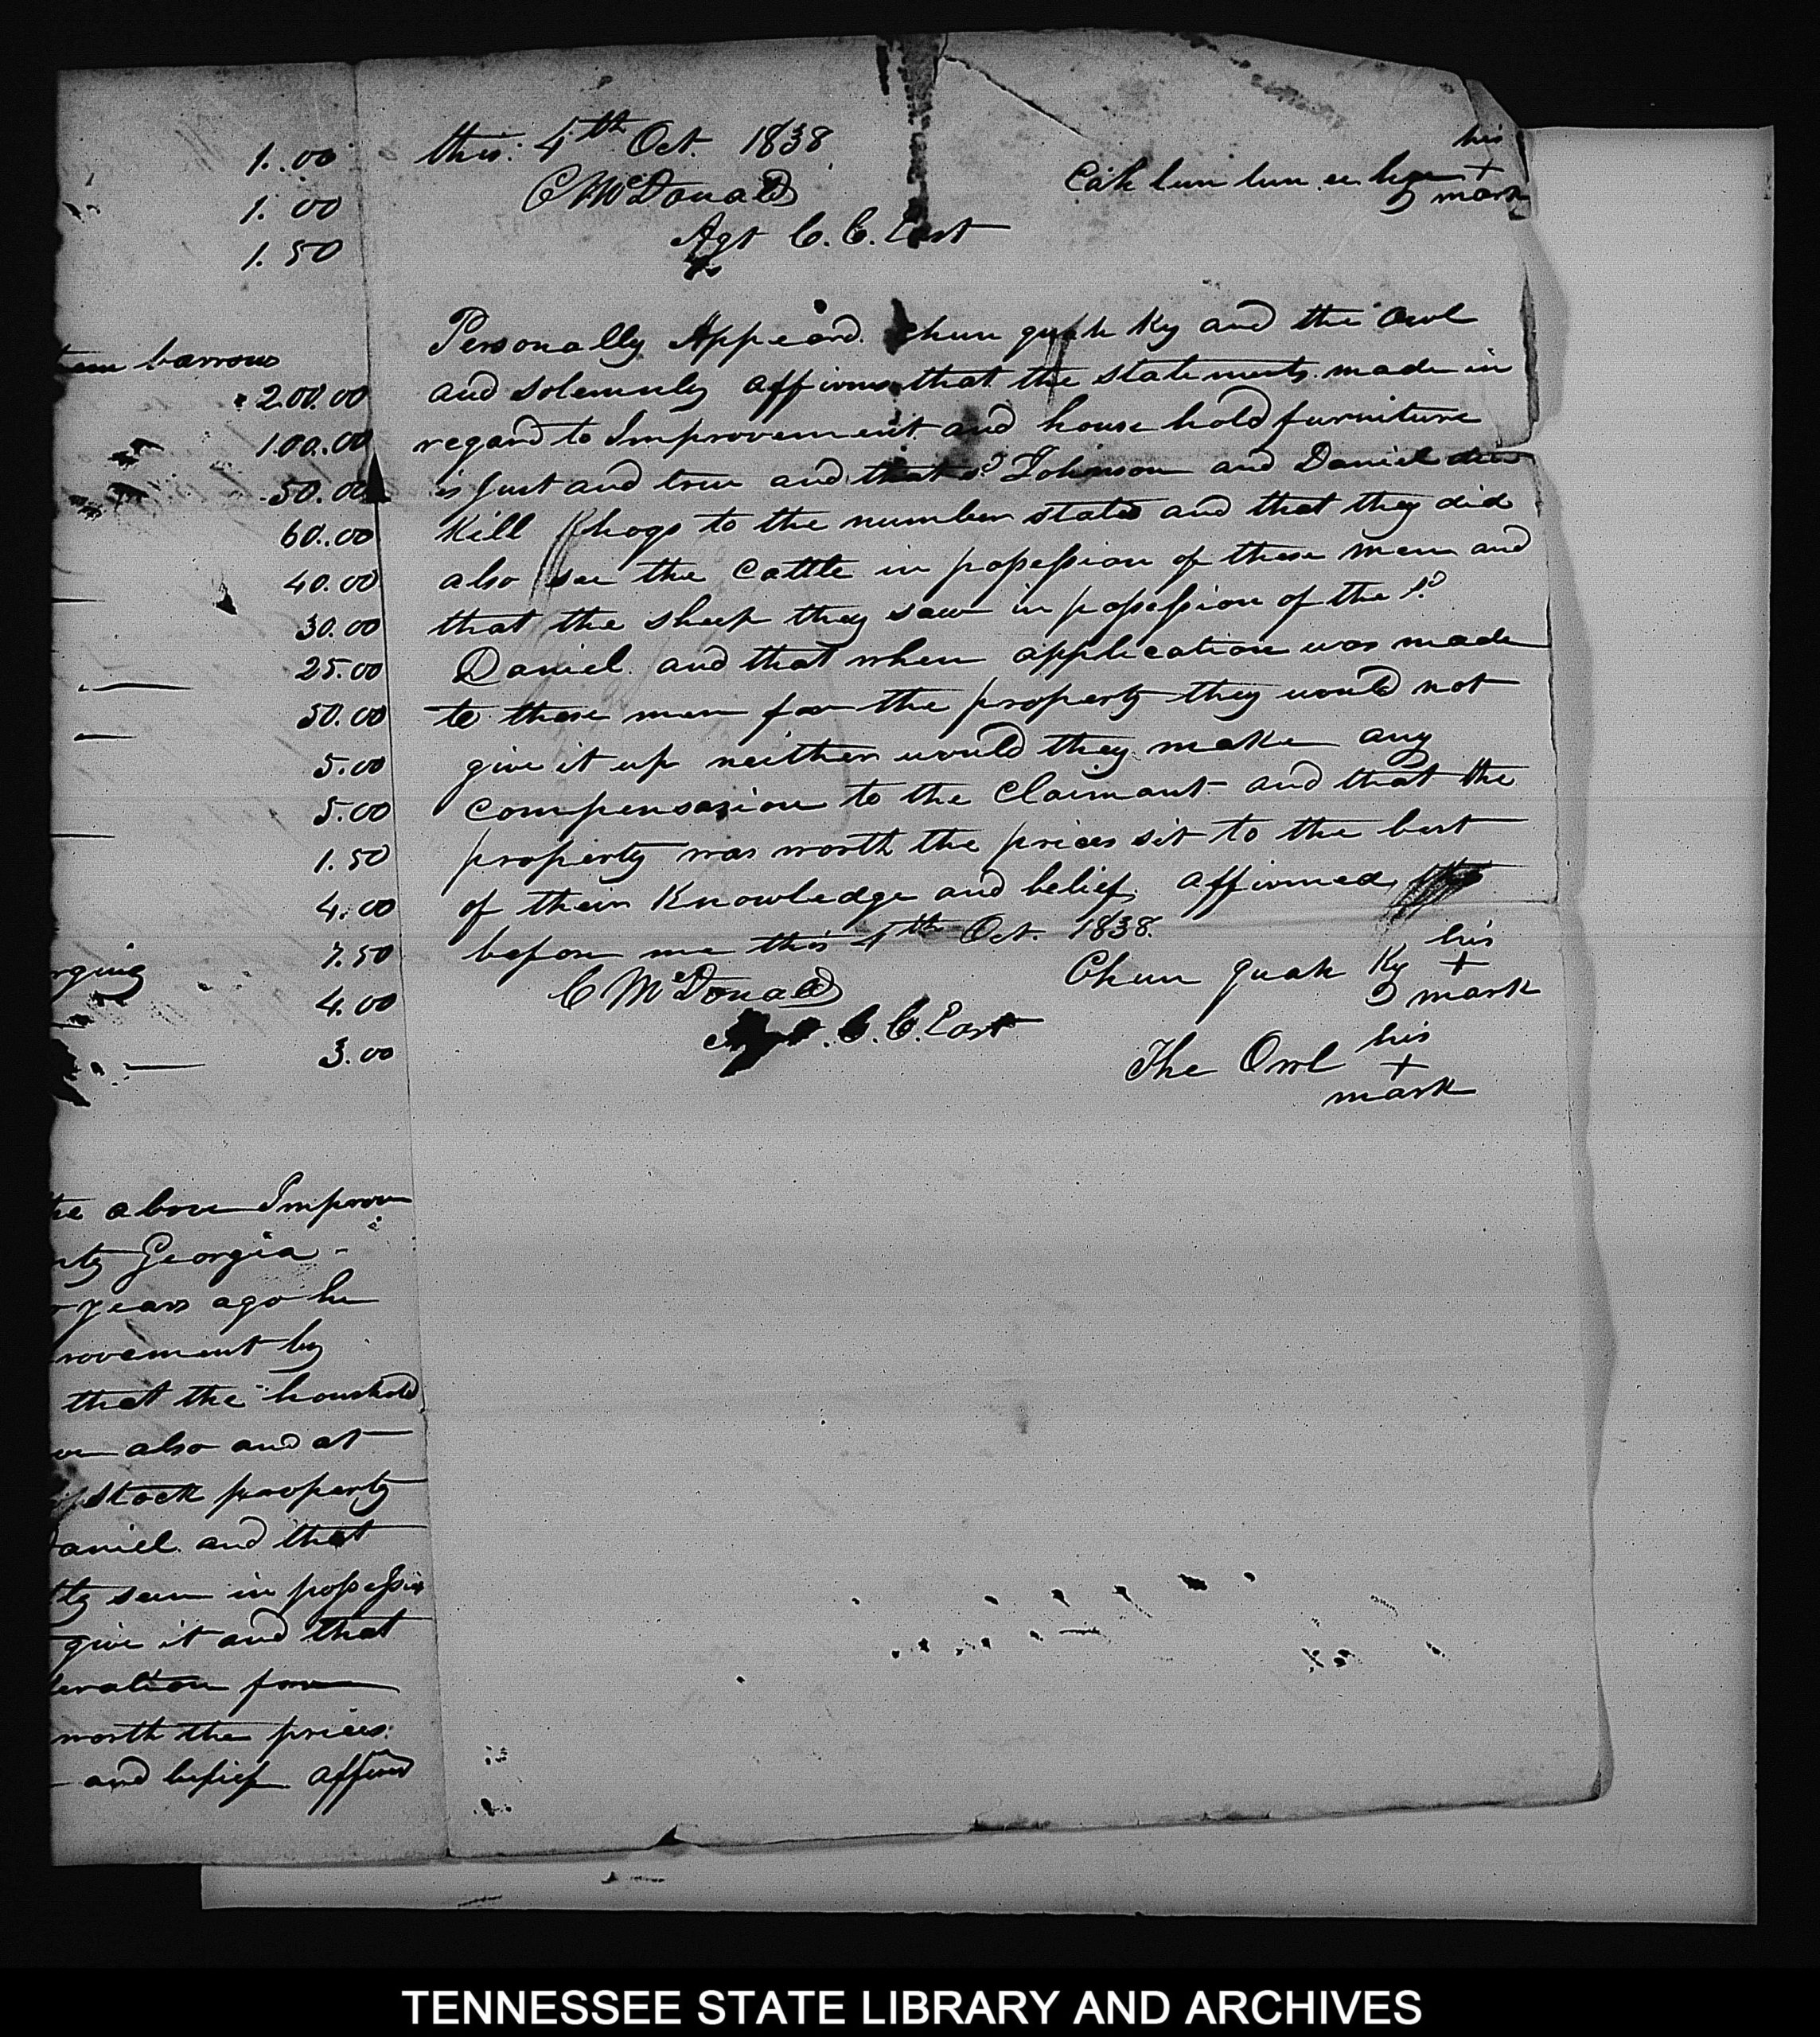 1.00
1.00
1.50
barrows
200.00
100.00
50.00
60.00
40.00
30.00
25.00
50.00
5.00
5.00
1.50
4.00
7.50
4.00
3.00
above Improve
Georgia
years ago he
rovement by
that the houshold
also and at
Stock property
aniel and that
seen in possession
give it and that
eration for
worth the prices
and belief affirmd
this 4th Oct. 1838
his
C McDonald
Cah lun lun ee hee +
mark
Agt C. C. East
Personally Appeard Chun quah Ky and the Owl
and Solemnly affirms that the statements made in
regard to Improvement and house hold furniture
is Just and true and that sd Johnson and Daniel did
kill hogs to the number stated and that they did
also see the Cattle in possession of these men and
that the sheep they saw in possession of the sd
Daniel and that when application was made
to these men for the property they would not
give it up neither would they make any
compensasion to the Claimant and that the
property was worth the prices sit to the best
of their Knowledge and belief affirmed
before me this 4th Oct. 1838.
his
C McDonald
Chun quah Ky +
mark
Agt. C. C. East
his
The Owl +
mark
TENNESSEE STATE LIBRARY AND ARCHIVES